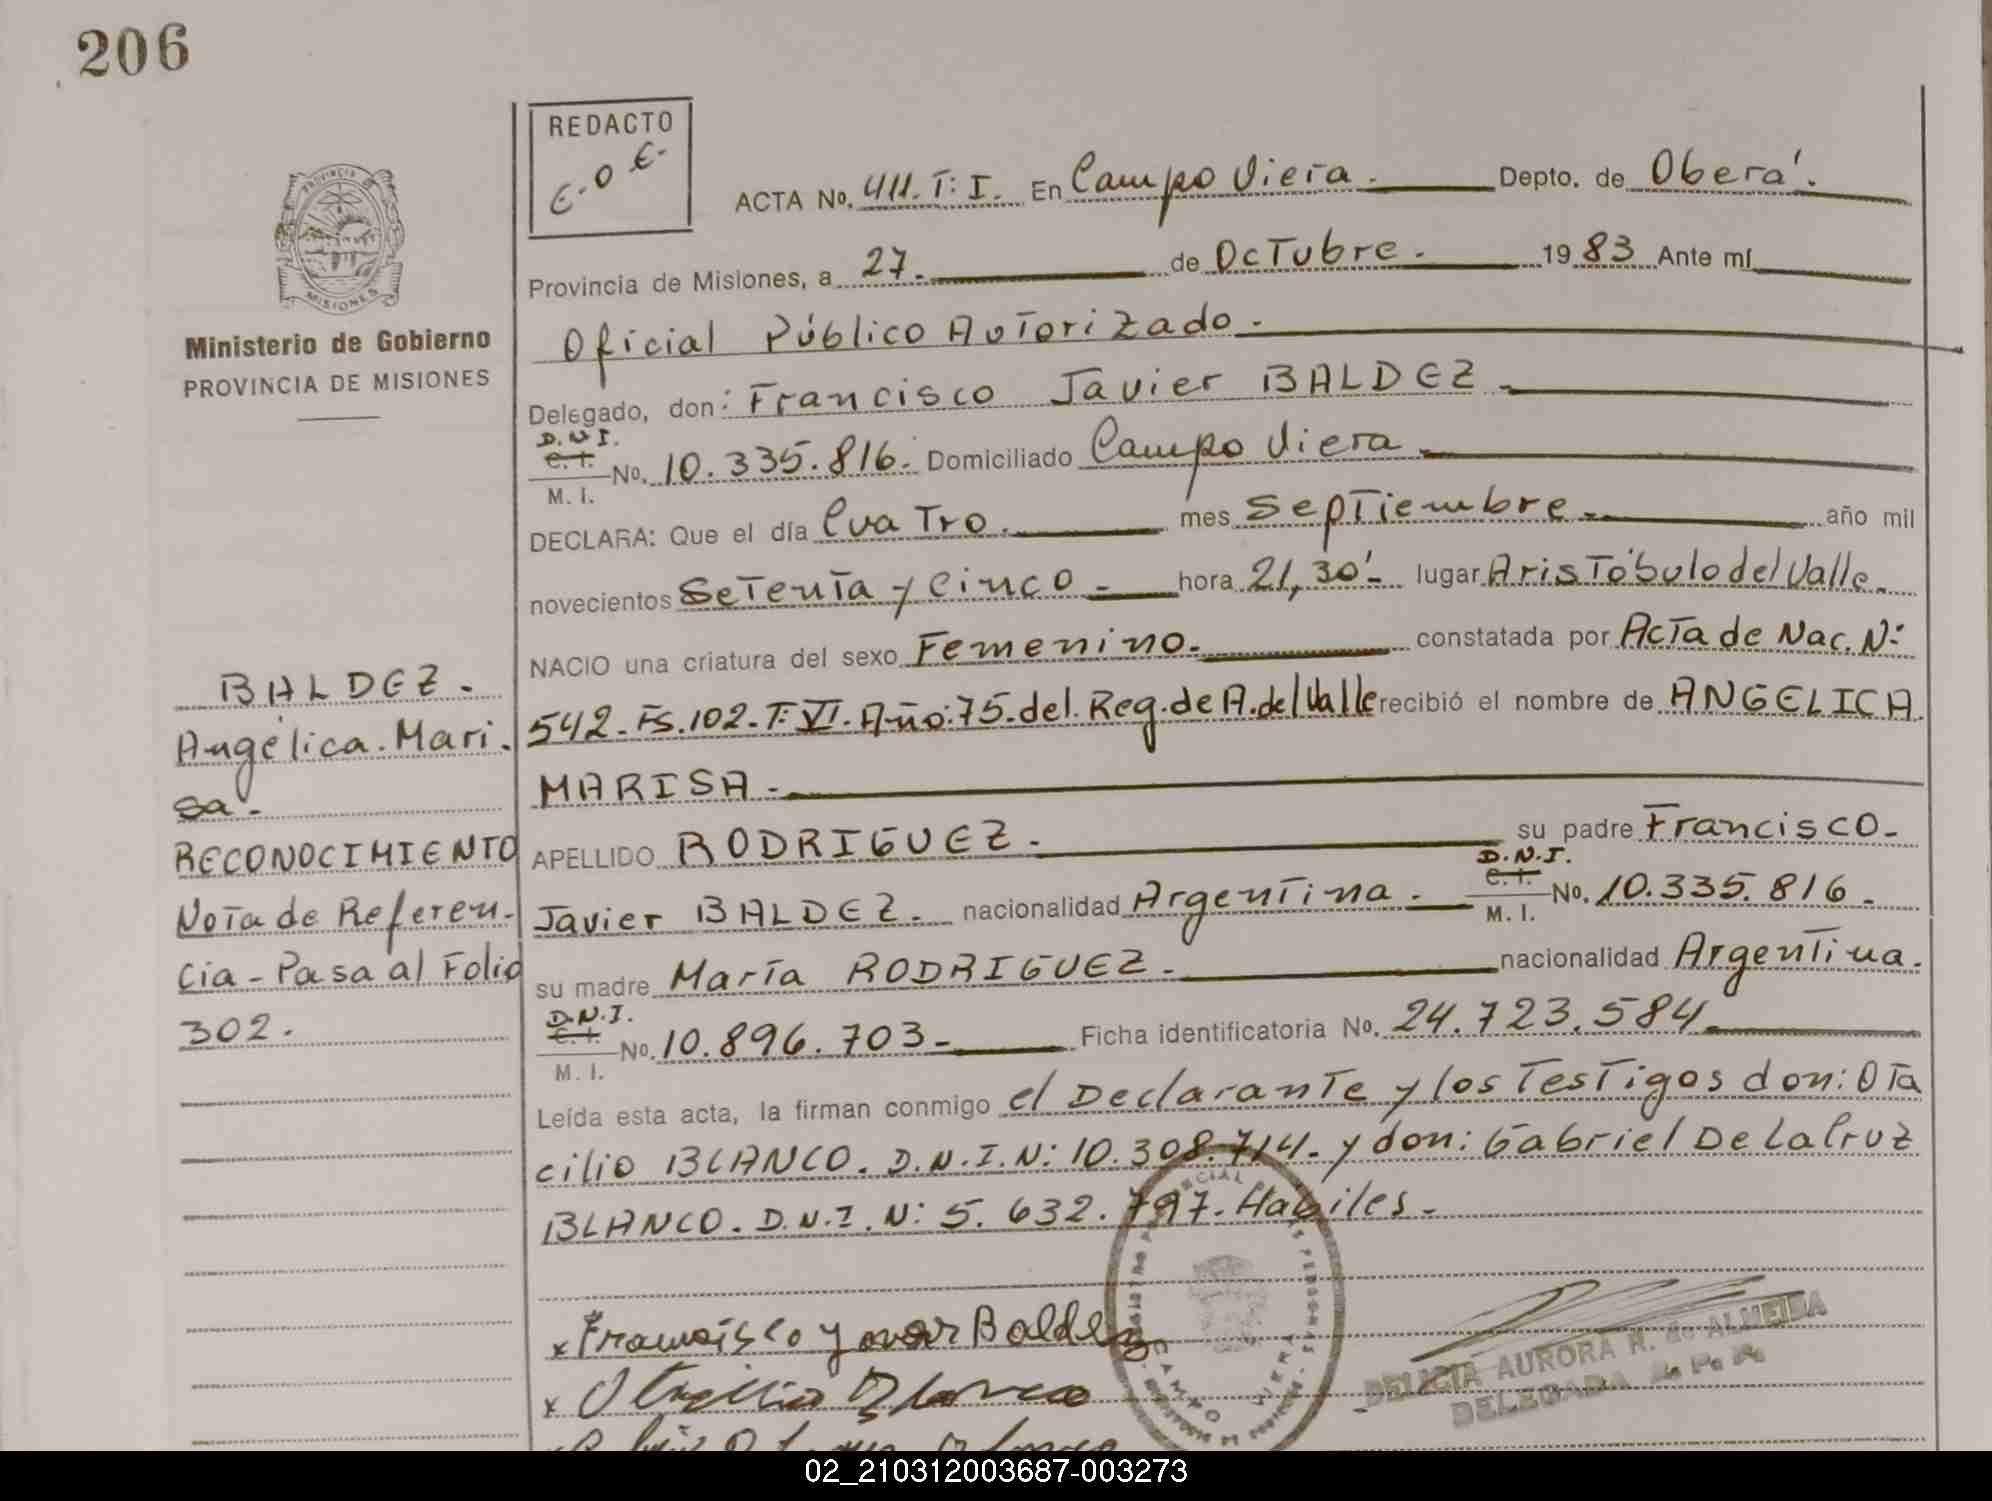 206
REDACTO
E.O.E.
PROVINCIA DE
MISIONES
Ministerio de Gobierno
PROVINCIA DE MISIONES
ACTA No. 411. T: I. En Campo Viera. Depto. de Oberá.
Provincia de Misiones, a 27. de Octubre. 1983 Ante mí
Oficial Público Autorizado.
Delegado, don: Francisco Javier BALDEZ.
D.N.I.
C. I.
M. I.
No. 10.335.816. Domiciliado Campo Viera
DECLARA: Que el día Cuatro. mes Septiembre. año mil
novecientos Setenta y Cinco hora 21,30' lugar Aristóbulo del Valle.
NACIO una criatura del sexo Femenino. constatada por Acta de Nac. N:
542. Fs. 102. T: VI. Año: 75. del. Reg. de A. del Valle recibió el nombre de ANGELICA
MARISA.
APELLIDO RODRIGUEZ. su padre Francisco
Javier BALDEZ. nacionalidad Argentina. D.N.I. C. I. M. I. No. 10.335.816.
su madre María RODRIGUEZ. nacionalidad Argentina.
D.N.I.
C. I.
M. I.
No. 10.896.703 Ficha identificatoria No. 24.723.584
Leída esta acta, la firman conmigo el Declarante y los Testigos don: Ota
cilio BLANCO. D.N.I. N: 10.308.714. y don: Gabriel De La Cruz
BLANCO. D.N.I. N: 5.632.797. Habiles.
BALDEZ.
Angélica. Mari.
sa.
RECONOCIMIENTO
Nota de Referen.
cia - Pasa al Folio
302.
x Francisco Javier Baldez
x Otacilio Blanco
CAMPO VIERA
DELICIA AURORA R. de ALMEIDA
DELEGADA R. P. P.
02_210312003687-003273